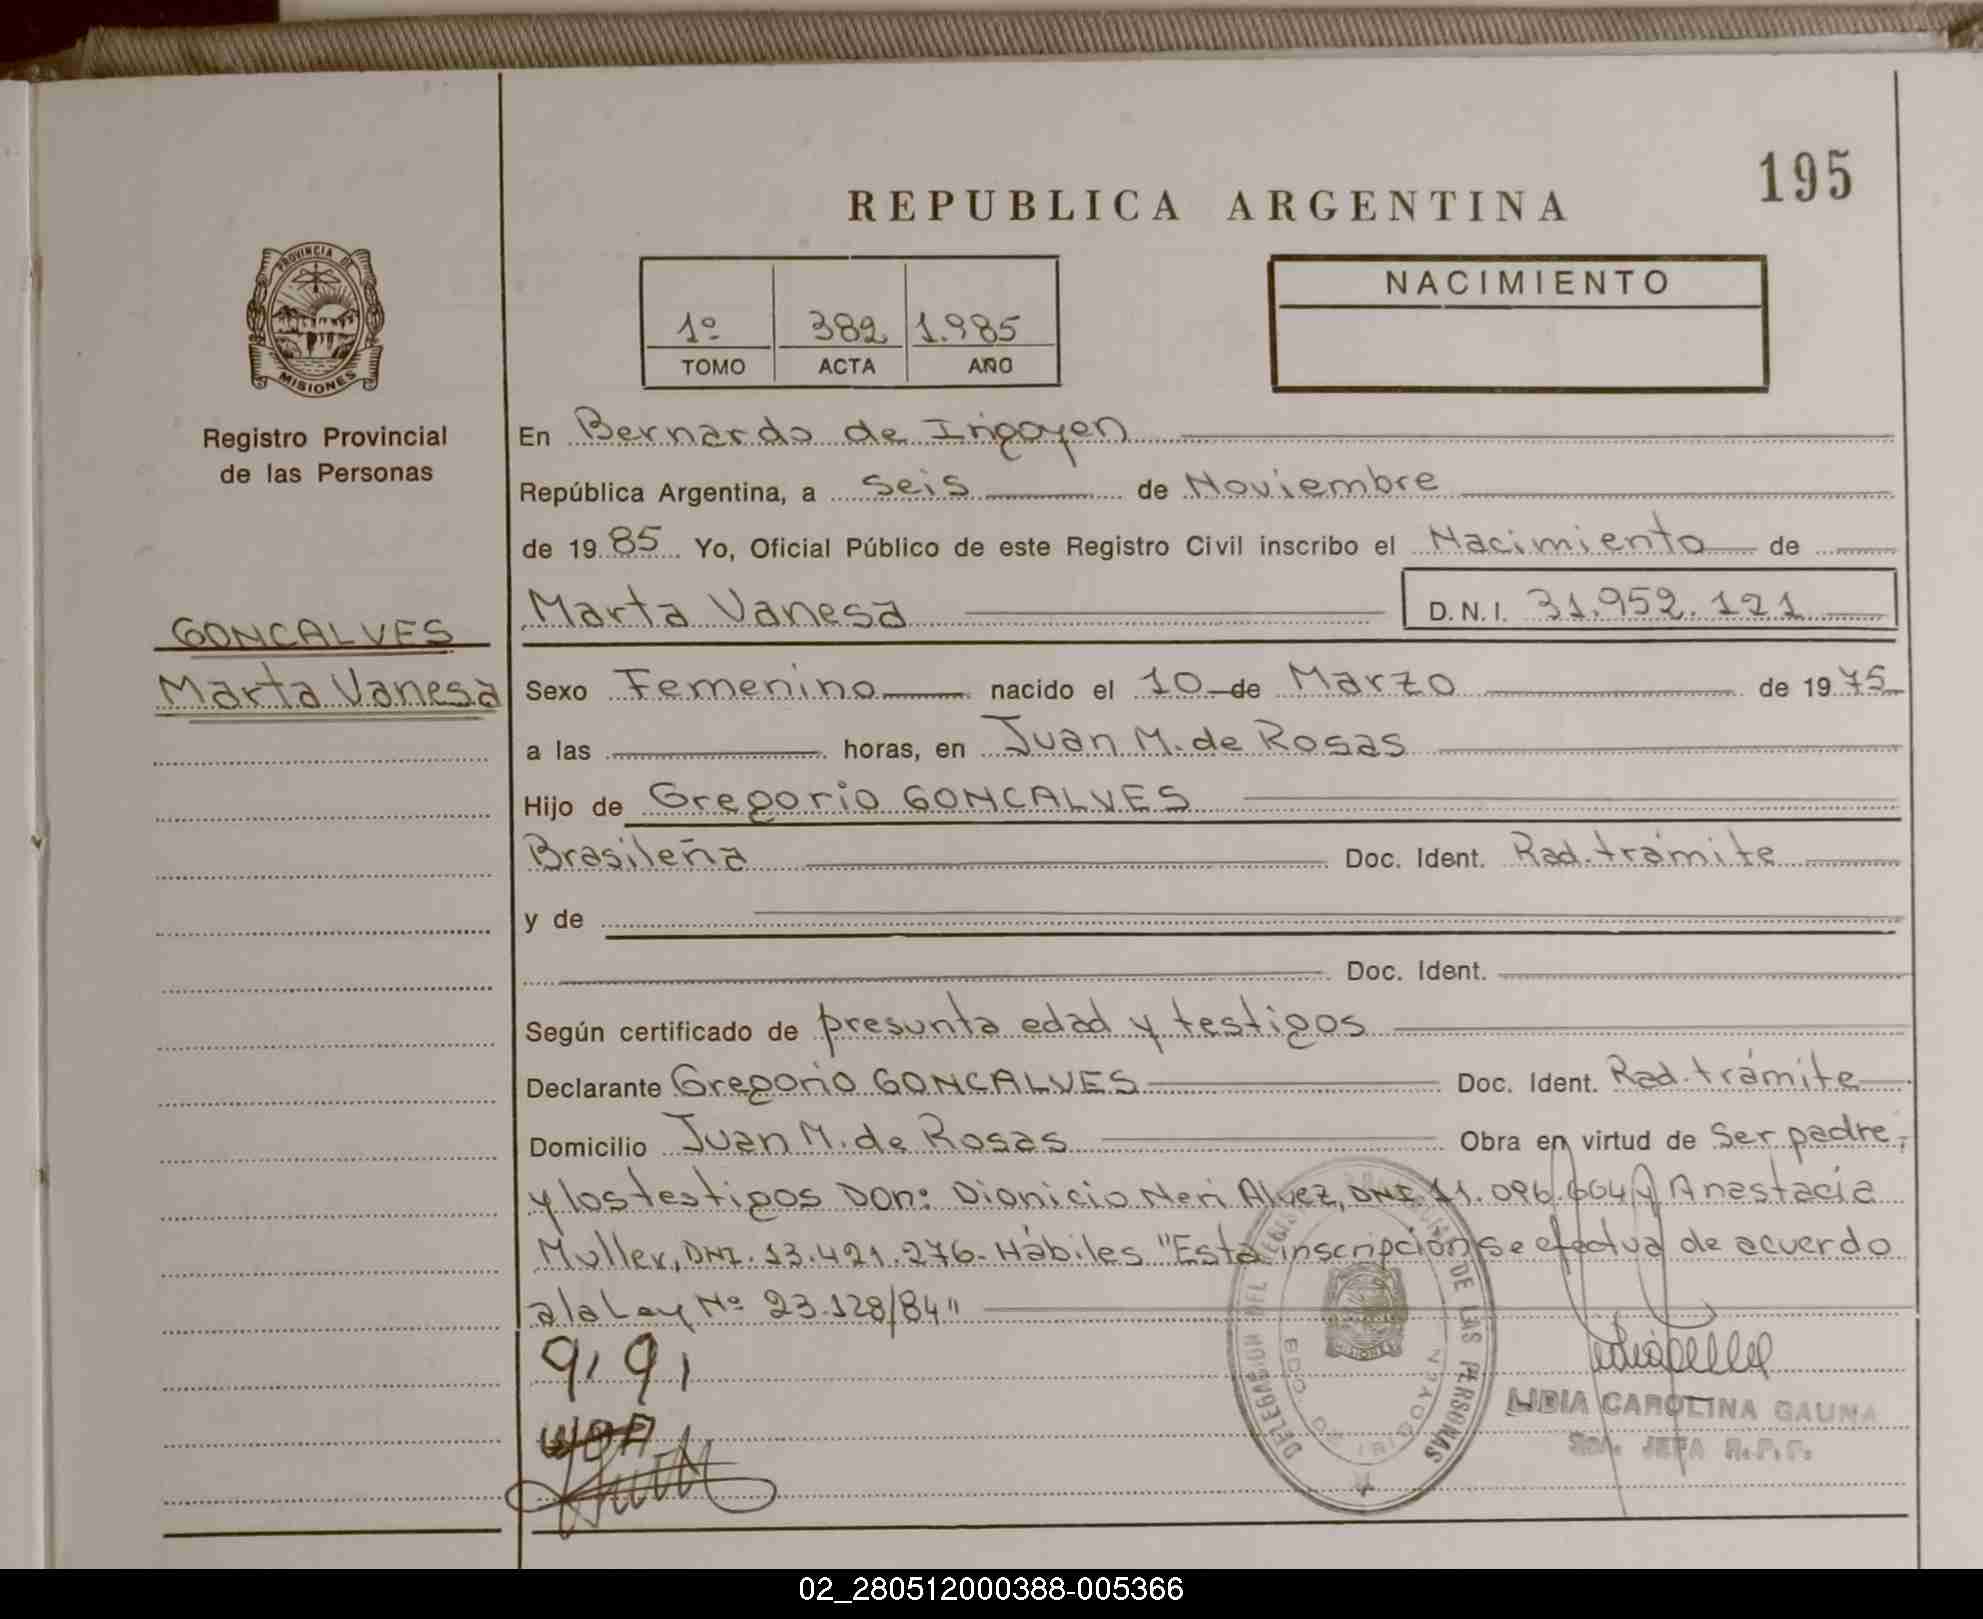 195
REPUBLICA ARGENTINA
PROVINCIA DE
MISIONES
Registro Provincial
de las Personas
1º 382 1.985
TOMO ACTA AÑO
NACIMIENTO
GONCALVES
Marta Vanesa
En Bernardo de Irigoyen
República Argentina, a seis de Noviembre
de 1985 Yo, Oficial Público de este Registro Civil inscribo el Nacimiento de
Marta Vanesa D.N.I. 31.952.121
Sexo Femenino nacido el 10 de Marzo de 1975
a las horas, en Juan M. de Rosas
Hijo de Gregorio GONCALVES
Brasileña Doc. Ident. Rad. trámite
y de
Doc. Ident.
Según certificado de presunta edad y testigos
Declarante Gregorio GONCALVES Doc. Ident. Rad. trámite
Domicilio Juan M. de Rosas Obra en virtud de Ser padre,
y los testigos Don: Dionicio Neri Alvez, DNI 11.096.664 y Anastacia
Muller, DNI. 13.421.276- Hábiles "Esta inscripción se efectua de acuerdo
a la Ley Nº 23.128/84"
DELEGACION DEL REGISTRO PROVINCIAL DE LAS PERSONAS
BDO. DE IRIGOYEN
MISIONES
LIDIA CAROLINA GAUNA
JEFA R.P.P.
02_280512000388-005366